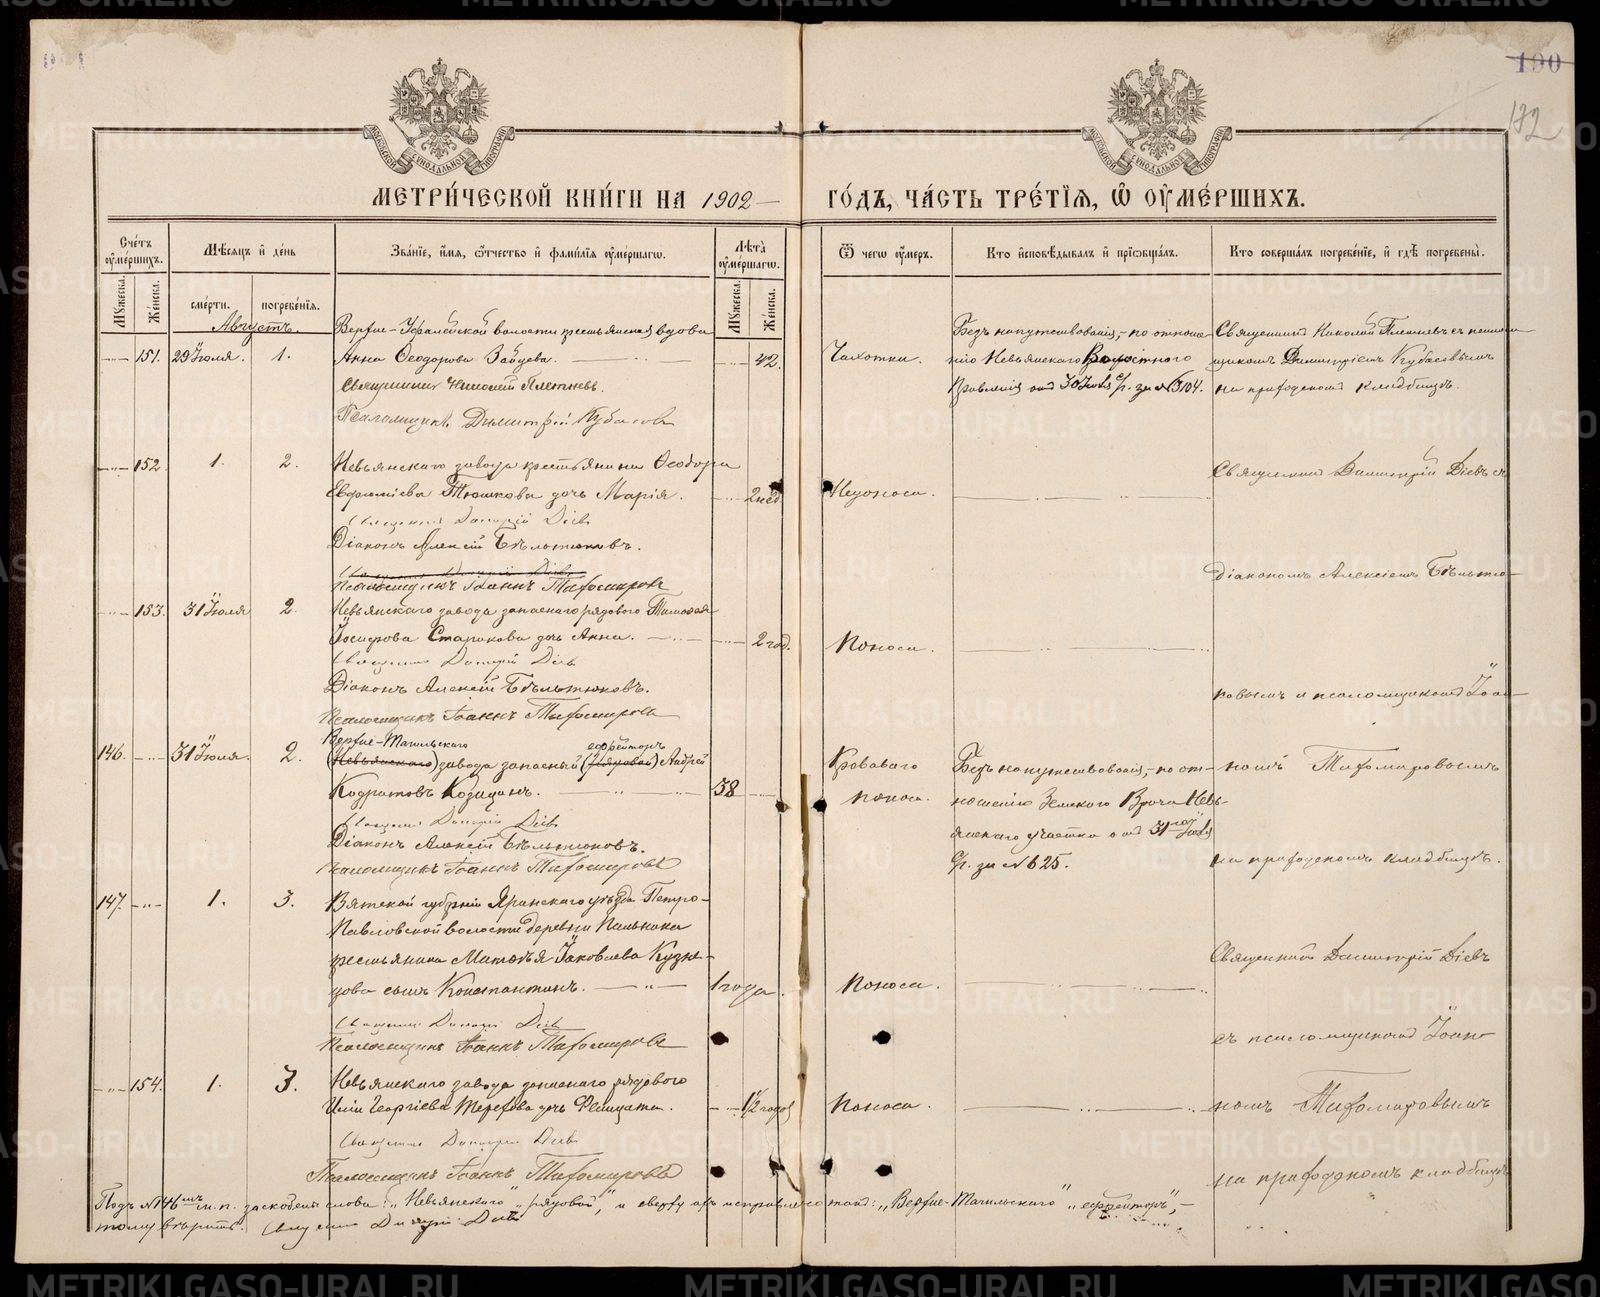 190
192
МОСКОВСКОЙ СѴНОДАЛЬНОЙ ТИПОГРАФІИ
МОСКОВСКОЙ СѴНОДАЛЬНОЙ ТИПОГРАФІИ
МЕТРИ́ЧЕСКОЙ КНИ́ГИ НА 1902 — ГО́ДЪ, ЧА́СТЬ ТРЕ́ТІѦ, Ѡ҆ ОУ҆МЕ́РШИХЪ.
Сче́тъ оу҆ме́ршихъ.
Мꙋжеска.
Же́нска.
Мѣ́сѧцъ и҆ де́нь
сме́рти.
погребе́нїѧ.
Зва́нїе, и҆́мѧ, ѻ҆́тчество и҆ фами́лїѧ оу҆ме́ршагѡ.
Лѣта̀ оу҆ме́ршагѡ.
Мꙋжеска.
Же́нска.
Ѿ чегѡ̀ оу҆́меръ.
Кто̀ и҆сповѣ́дывалъ и҆ прїѡбща́лъ.
Кто̀ соверша́лъ погребе́нїе, и҆ гдѣ̀ погребены̀.
Августъ.
151. 29 Іюля. 1.
Верхне-Уфалейской волости крестьянская вдова
Анна Ѳеодорова Зайцева. 42.
Священникъ Николай Плетневъ.
Псаломщикъ Димитрій Кубасовъ
Чахотки.
Безъ напутствованія, по отноше-
нію Невьянскаго Волостного
Правленія отъ 30 Іюля с/г. за № 3104.
Священникъ Николай Плетневъ съ псалом-
щикомъ Димитріемъ Кубасовымъ
на приходскомъ кладбищѣ.
152 1. 2.
Невьянскаго завода крестьянина Ѳеодора
Евфиміева Тюшкова дочь Марія. 2 нед.
Священникъ Димитрій Діевъ
Діаконъ Алексій Бѣльтюковъ.
Псаломщикъ Іоаннъ Тихомировъ
Недоноса.
Священникъ Димитрій Діевъ съ
діакономъ Алексіемъ Бѣльтю-
153. 31 Іюля 2.
Невьянскаго завода запаснаго рядового Тимоѳея
Іосифова Старикова дочь Анна. 2 год.
Священникъ Димитрій Діевъ
Діаконъ Алексій Бѣльтюковъ.
Псаломщикъ Іоаннъ Тихомировъ
Поноса.
ковымъ и псаломщикомъ Іоан-
146. 31 Іюля. 2.
Верхне-Тагильскаго ефрейторъ
(Невьянскаго) завода запасный (рядовой) Андрей
Кодратовъ Козицинъ. 58
Священникъ Димитрій Діевъ
Діаконъ Алексій Бѣльтюковъ.
Псаломщикъ Іоаннъ Тихомировъ
Кроваваго
поноса.
Безъ напутствованія, по от-
ношенію Земскаго Врача Невь-
янскаго участка отъ 31го Іюля
с/г. за № 625.
номъ Тихомировымъ
на приходскомъ кладбищѣ.
147. 1. 3.
Вятской губерніи Яранскаго уѣзда Петро-
Павловской волости деревни
крестьянина Матвѣя Іаковлева Кузне-
цова сынъ Константинъ. 1 года.
Священникъ Димитрій Діевъ
Псаломщикъ Іоаннъ Тихомировъ
Поноса.
Священникъ Димитрій Діевъ
съ псаломщикомъ Іоан-
154. 1. 3.
Невьянскаго завода запаснаго рядового
Иліи Георгіева Терехова дочь Фелицата. 1½ годов.
Священникъ Димитрій Діевъ
Псаломщикъ Іоаннъ Тихомировъ
Поноса.
номъ Тихомировымъ
на приходскомъ кладбищѣ
Подъ № 146мъ м. п. заскоблены слова: „Невьянскаго" „рядовой", и сверху ихъ исправлено такъ: „Верхне-Тагильскаго" „ефрейторъ", —
тому вѣрить. Священникъ Димитрій Діевъ
METRIKI.GASO-URAL.RU